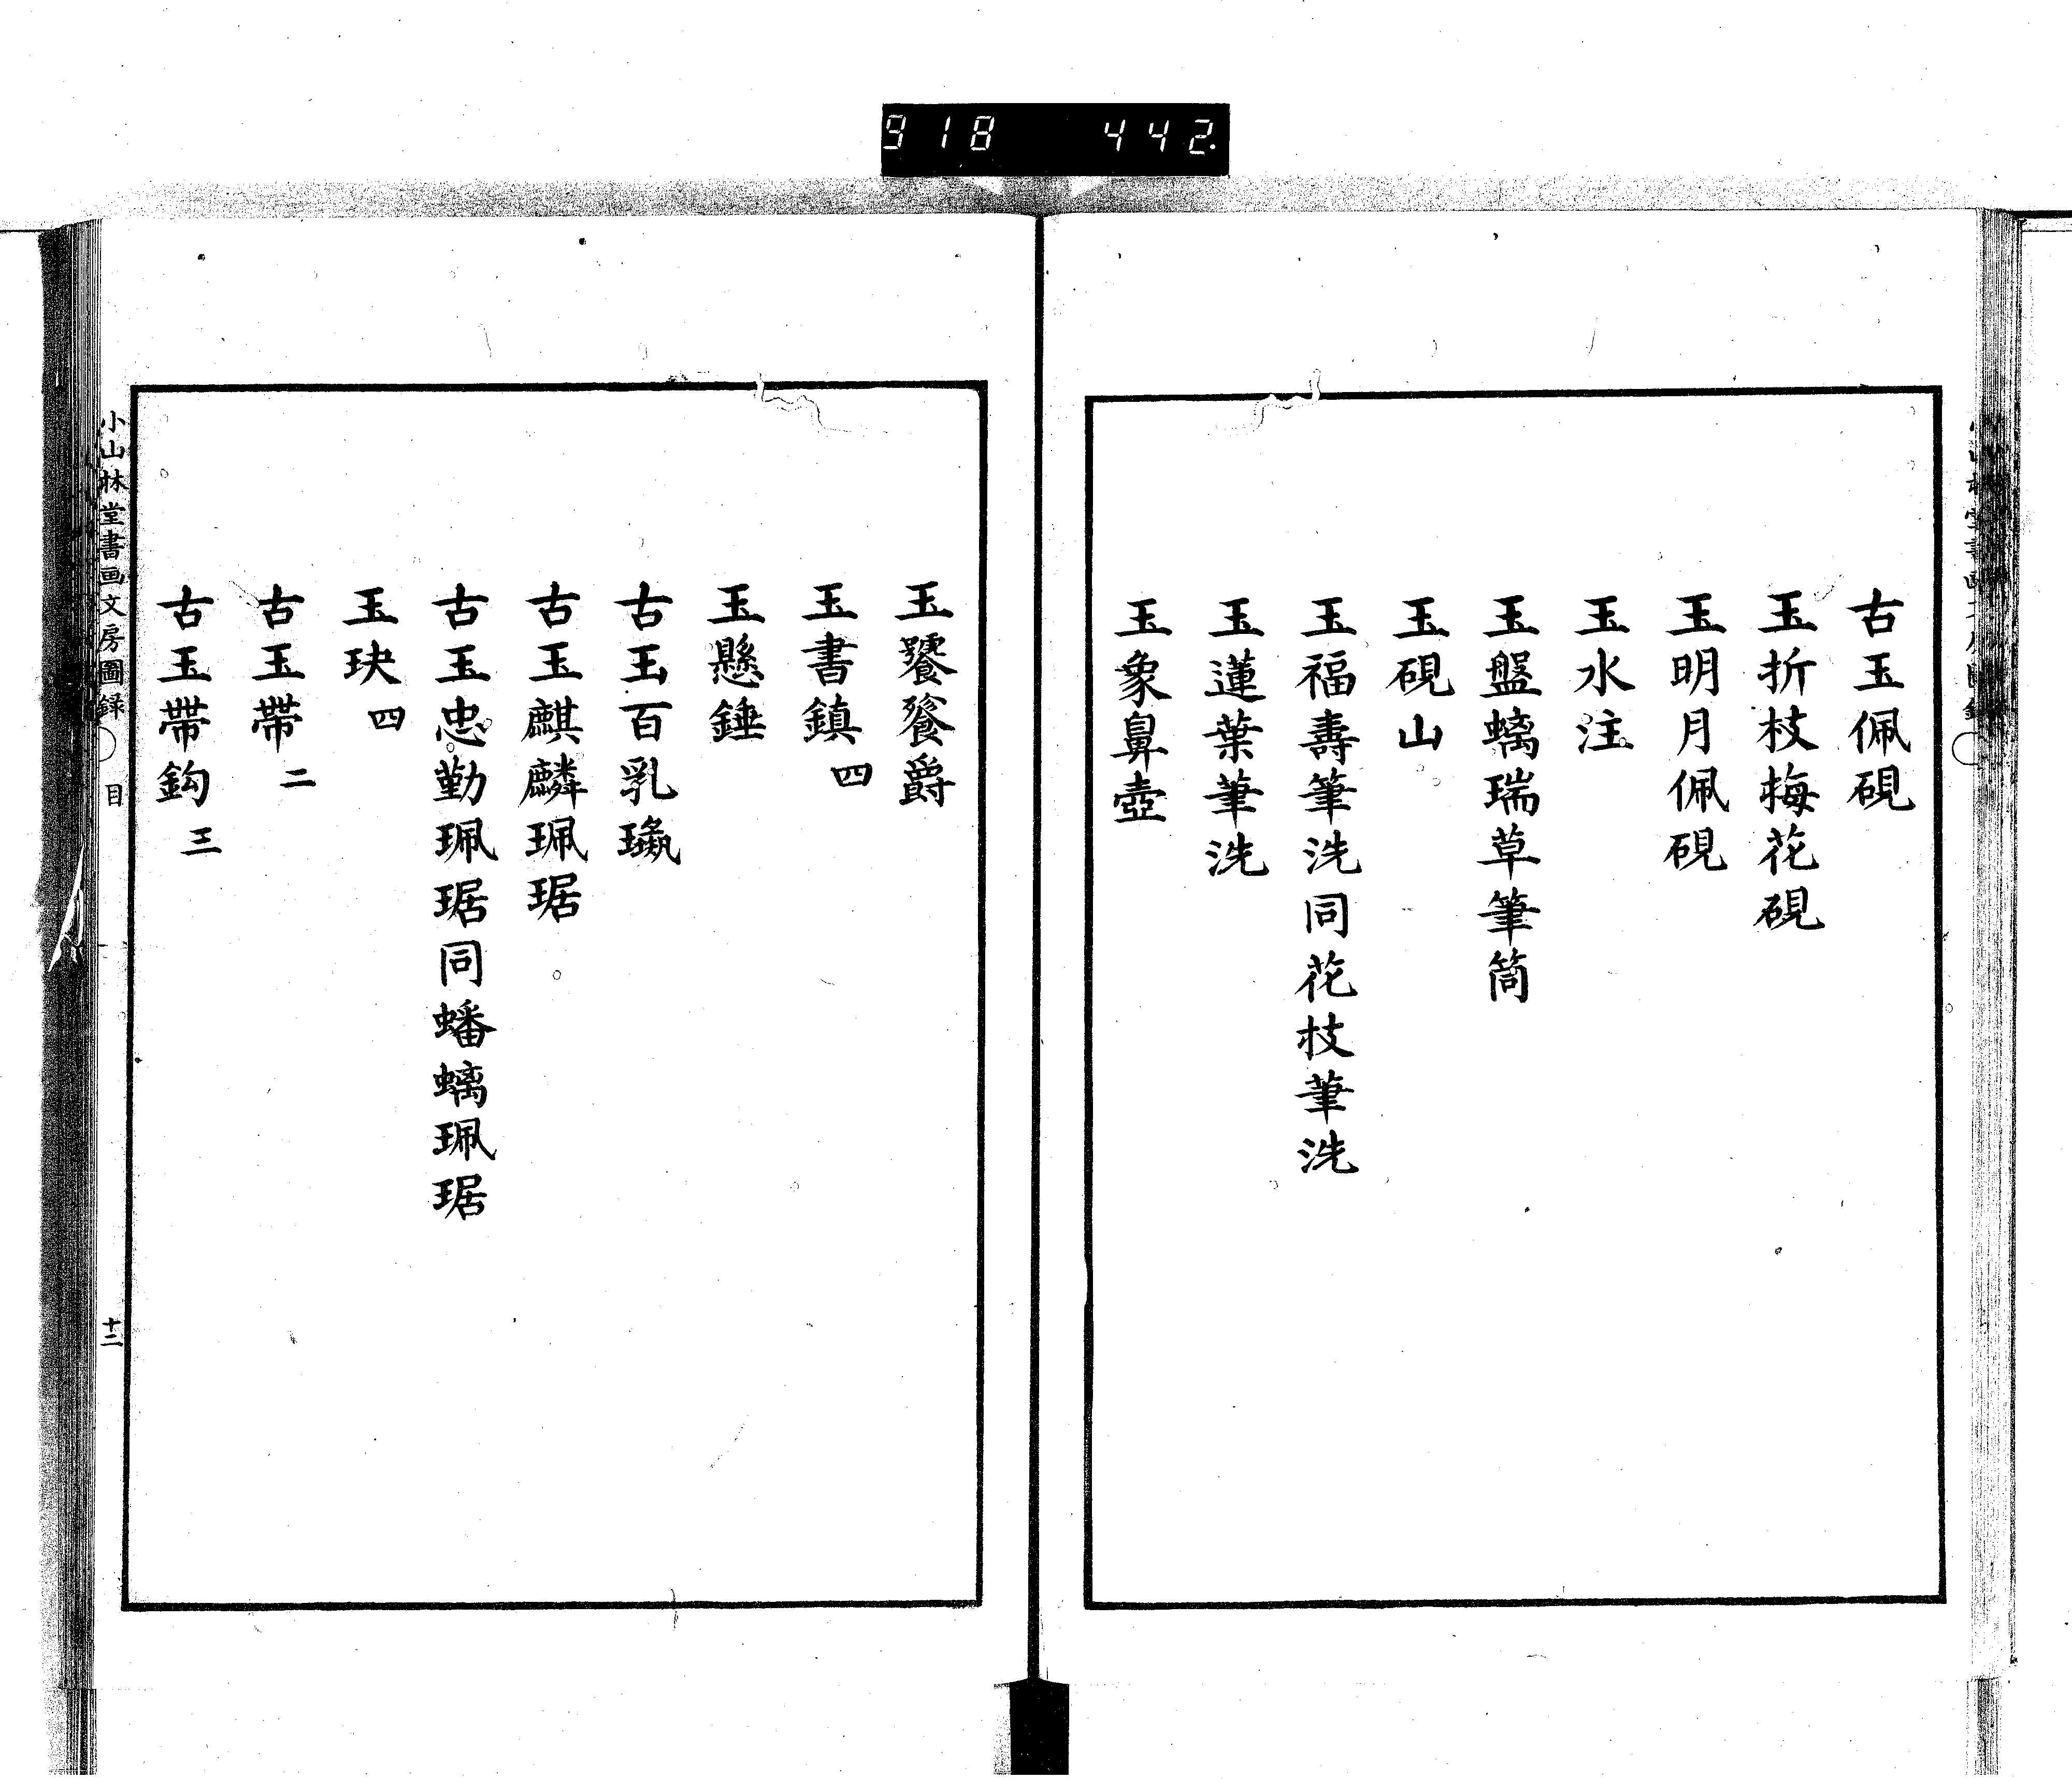 918 442.
古玉佩硯
玉折枝梅花硯
玉明月佩硯
玉水注
玉盤螭瑞草筆筒
玉硯山
玉福壽筆洗同花枝筆洗
玉蓮葉筆洗
玉象鼻壺
玉饕餮爵
玉書鎮 四
玉懸錘
古玉百乳
古玉麒麟珮琚
古玉忠勤珮琚同蟠螭珮琚
玉玦 四
古玉帶 二
古玉帶鈎 三
小山林堂書画文房圖録 目 十二